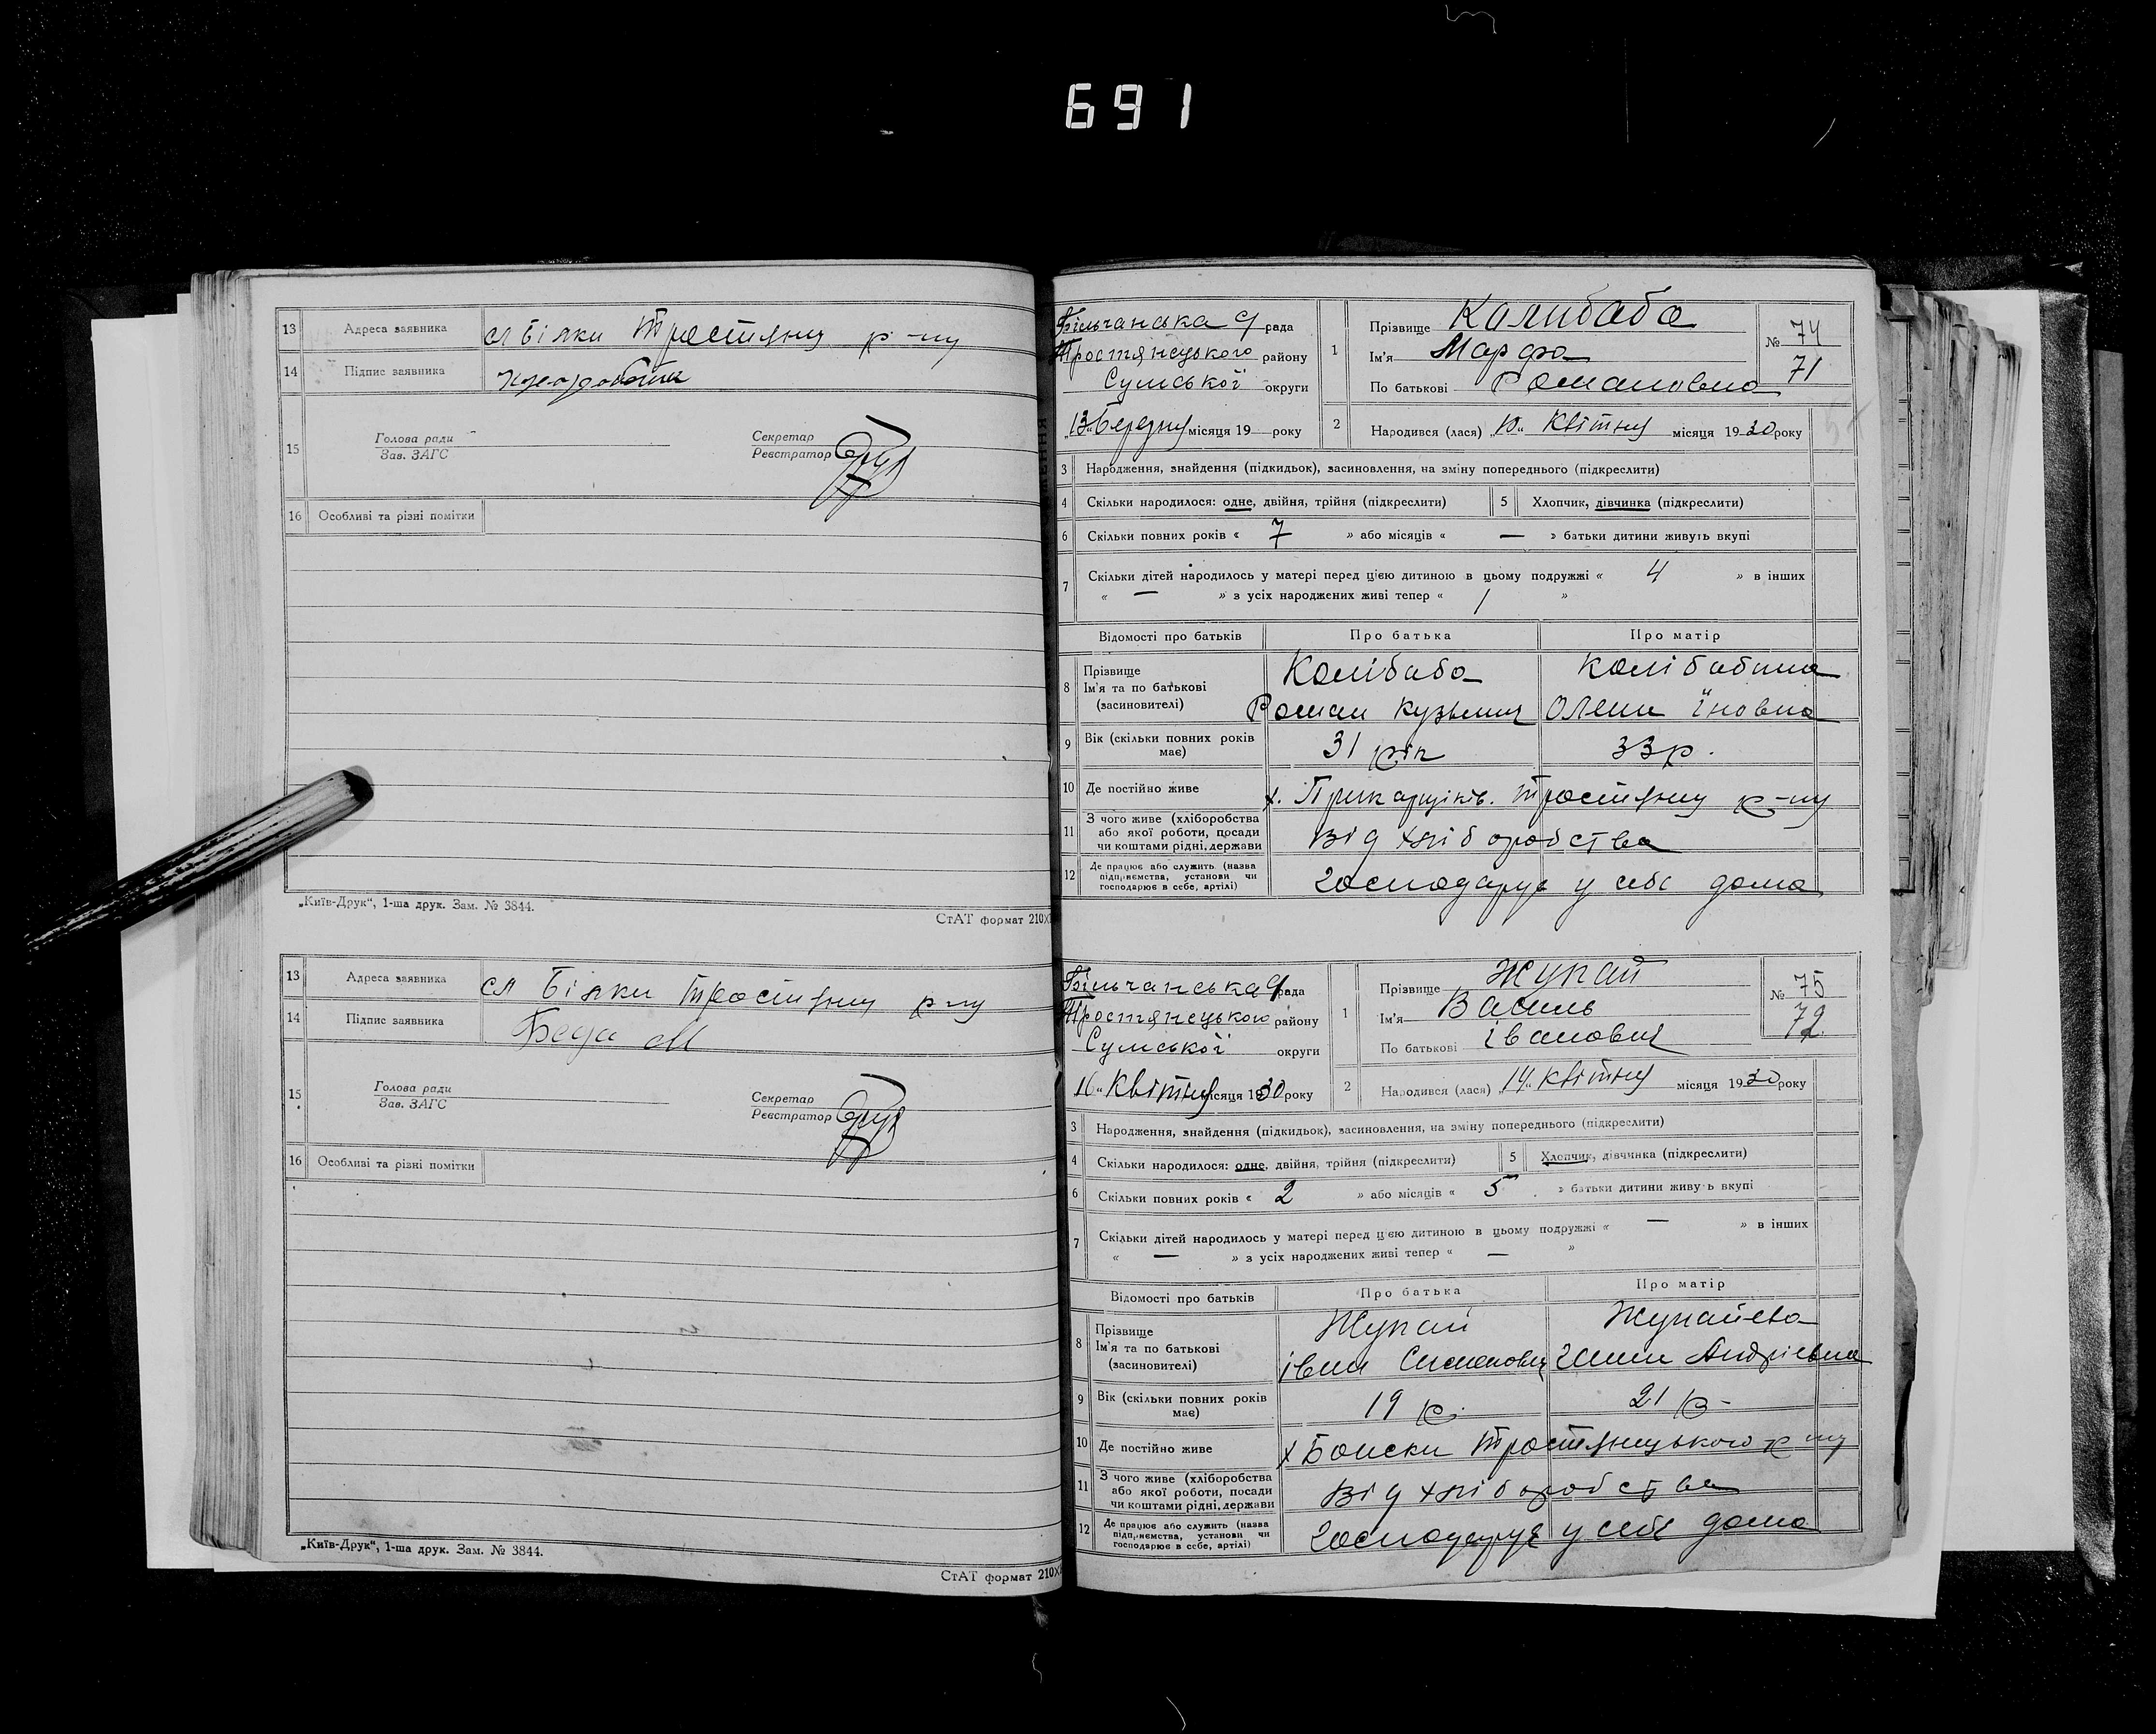 691
13 Адреса заявника сл Білки Тростянц р-ну
14 Підпис заявника
15 Голова ради
Зав. ЗАГС
Секретар
Реєстратор
16 Особливі та різні помітки
„Київ-Друк“, 1-ша друк. Зам. № 3844.
СтАТ формат 210×
13 Адреса заявника сл Білки Тростянц р-ну
14 Підпис заявника Беда М
15 Голова ради
Зав. ЗАГС
Секретар
Реєстратор
16 Особливі та різні помітки
„Київ-Друк“, 1-ша друк. Зам. № 3844.
СтАТ формат 210×
Більчанська с/рада
Тростянецького району
Сумської округи
„13“ Березня місяця 19 року
1 Прізвище Колибаба
Ім'я Марфа
По батькові Романовна
№ 74
71
2 Народився (лася) „10“ Квітня місяця 1930 року
3 Народження, знайдення (підкидьок), засиновлення, на зміну попереднього (підкреслити)
4 Скільки народилося: одне, двійня, трійня (підкреслити) 5 Хлопчик, дівчинка (підкреслити)
6 Скільки повних років « 7 » або місяців « — » батьки дитини живуть вкупі
7 Скільки дітей народилось у матері перед цією дитиною в цьому подружжі « 4 » в інших
« — » з усіх народжених живі тепер « 1 »
Відомості про батьків Про батька Про матір
8 Прізвище
Ім'я та по батькові
(засиновителі)
Колібаба Колібабина
Роман Кузьмич Олена
9 Вік (скільки повних років має) 31 рік 33 р.
10 Де постійно живе х. Тростянц р-ну
11 З чого живе (хліборобства
або якої роботи, посади
чи коштами рідні, держави
Від хліборобства
12 Де працює або служить (назва
підприємства, установи чи
господарює в себе, артілі)
Господарує у себе дома
Більчанська с/рада
Тростянецького району
Сумської округи
16“ Квітня місяця 1930 року
1 Прізвище Жупай
Ім'я Василь
По батькові Іванович
№ 75
72
2 Народився (лася) „14“ Квітня місяця 1930 року
3 Народження, знайдення (підкидьок), засиновлення, на зміну попереднього (підкреслити)
4 Скільки народилося: одне, двійня, трійня (підкреслити) 5 Хлопчик, дівчинка (підкреслити)
6 Скільки повних років « 2 » або місяців « 5 » батьки дитини живуть вкупі
7 Скільки дітей народилось у матері перед цією дитиною в цьому подружжі « — » в інших
« — » з усіх народжених живі тепер « — »
Відомості про батьків Про батька Про матір
8 Прізвище
Ім'я та по батькові
(засиновителі)
Жупай Жупайева
Іван Семенович Ганна Андріевна
9 Вік (скільки повних років має) 19 р. 21 р-
10 Де постійно живе х Тростянецького р-ну
11 З чого живе (хліборобства
або якої роботи, посади
чи коштами рідні, держави
Від хліборобства
12 Де працює або служить (назва
підприємства, установи чи
господарює в себе, артілі)
Господарує у себе дома